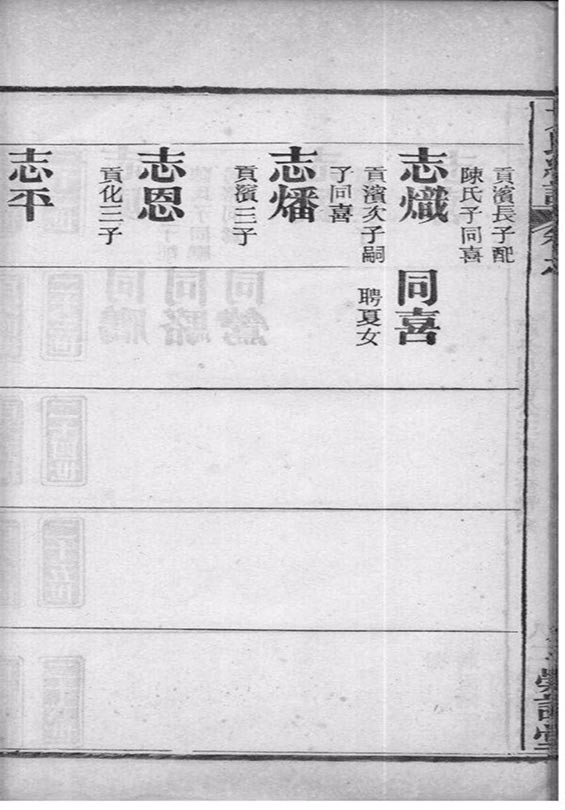 貢濱長子配
陳氏子同喜
志熾
貢濱次子嗣
子同喜
同喜
聘夏女
志燔
貢濱三子
志恩
貢化三子
志平